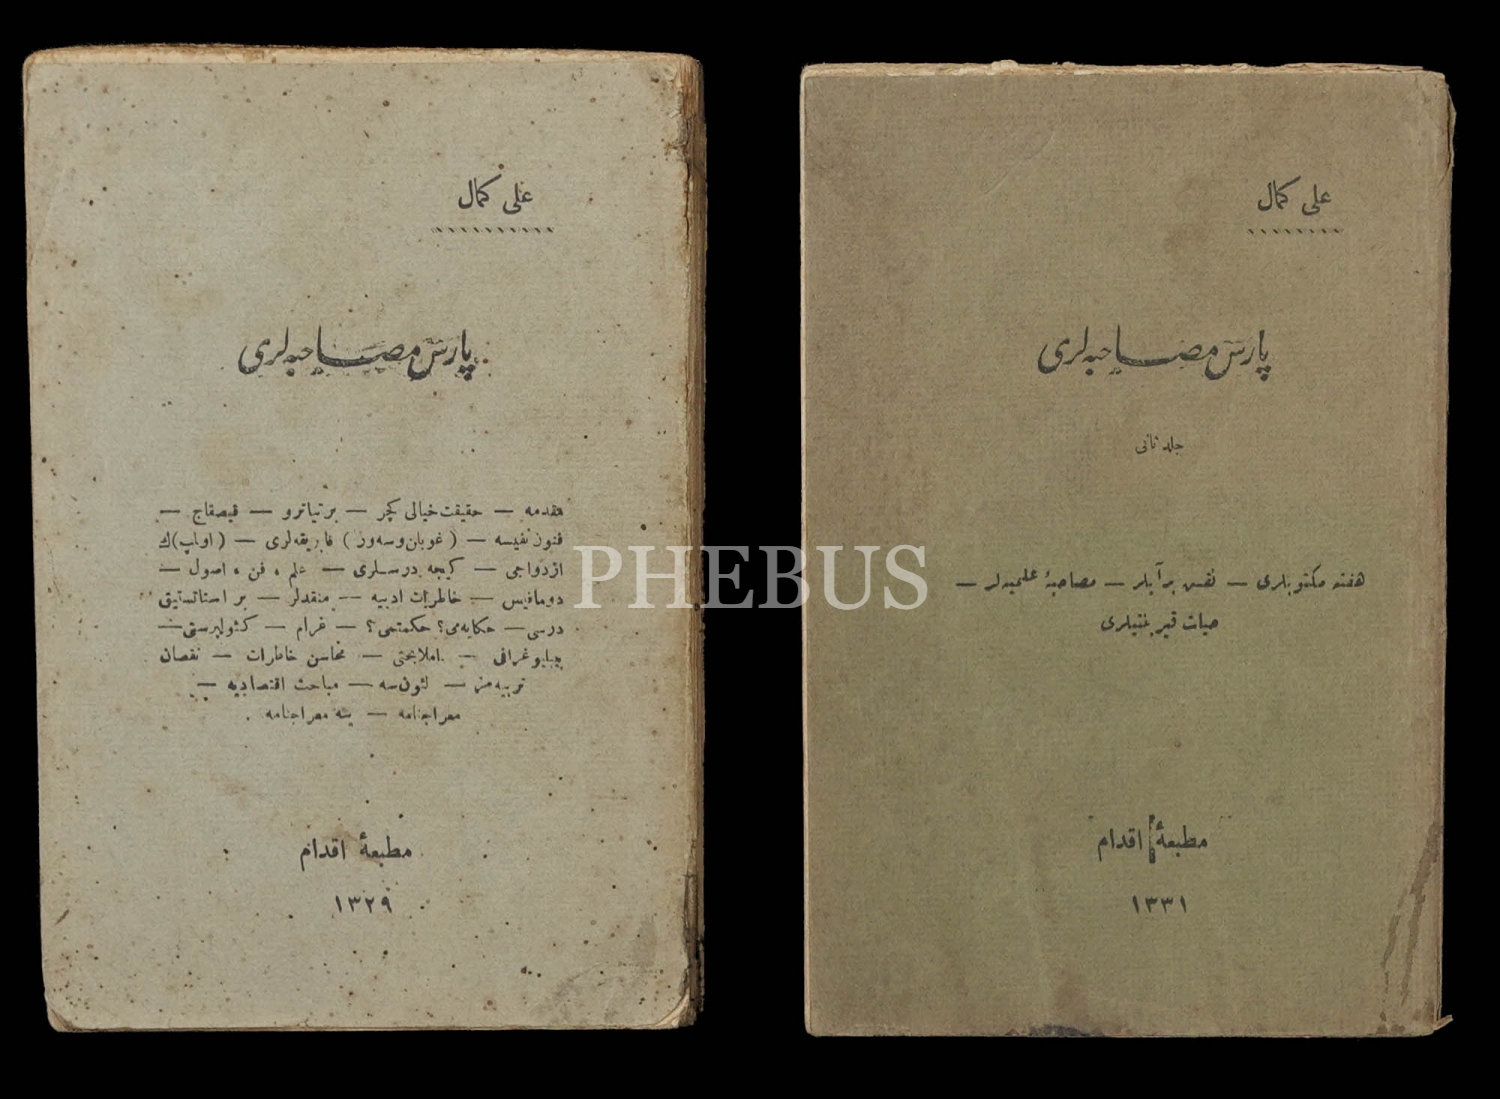 علی کمال
پارس مصاحبه‌لری
مقدمه — حقیقت خیالی کچر — بر تیاترو — قیصقاج —
فنون نفیسه — ( غوبان وسه‌ور ) فابریقه‌لری — ( اوایپ)ك
ازدواجی — کیجه درسلری — علم ، فن ، اصول —
خاطرات ادبیه — منقدلر — بر استاتستیق
درسی — حکایه‌می؟ حکمتمی؟ — غرام —
بیبلیوغرافی — املا بحثی — محاسن خاطرات — نقصان
تربیه‌مز — لئون سه — مباحث اقتصادیه —
معراجنامه — ینه معراجنامه .
مطبعۀ اقدام
١٣٢٩
علی کمال
پارس مصاحبه‌لری
جلد ثانی
هفته مکتوبلری — نفس بر آیلر — مصاحبۀ علمیه‌لر —
حیات قیرینتیلری
مطبعۀ اقدام
١٣٣١
PHEBUS